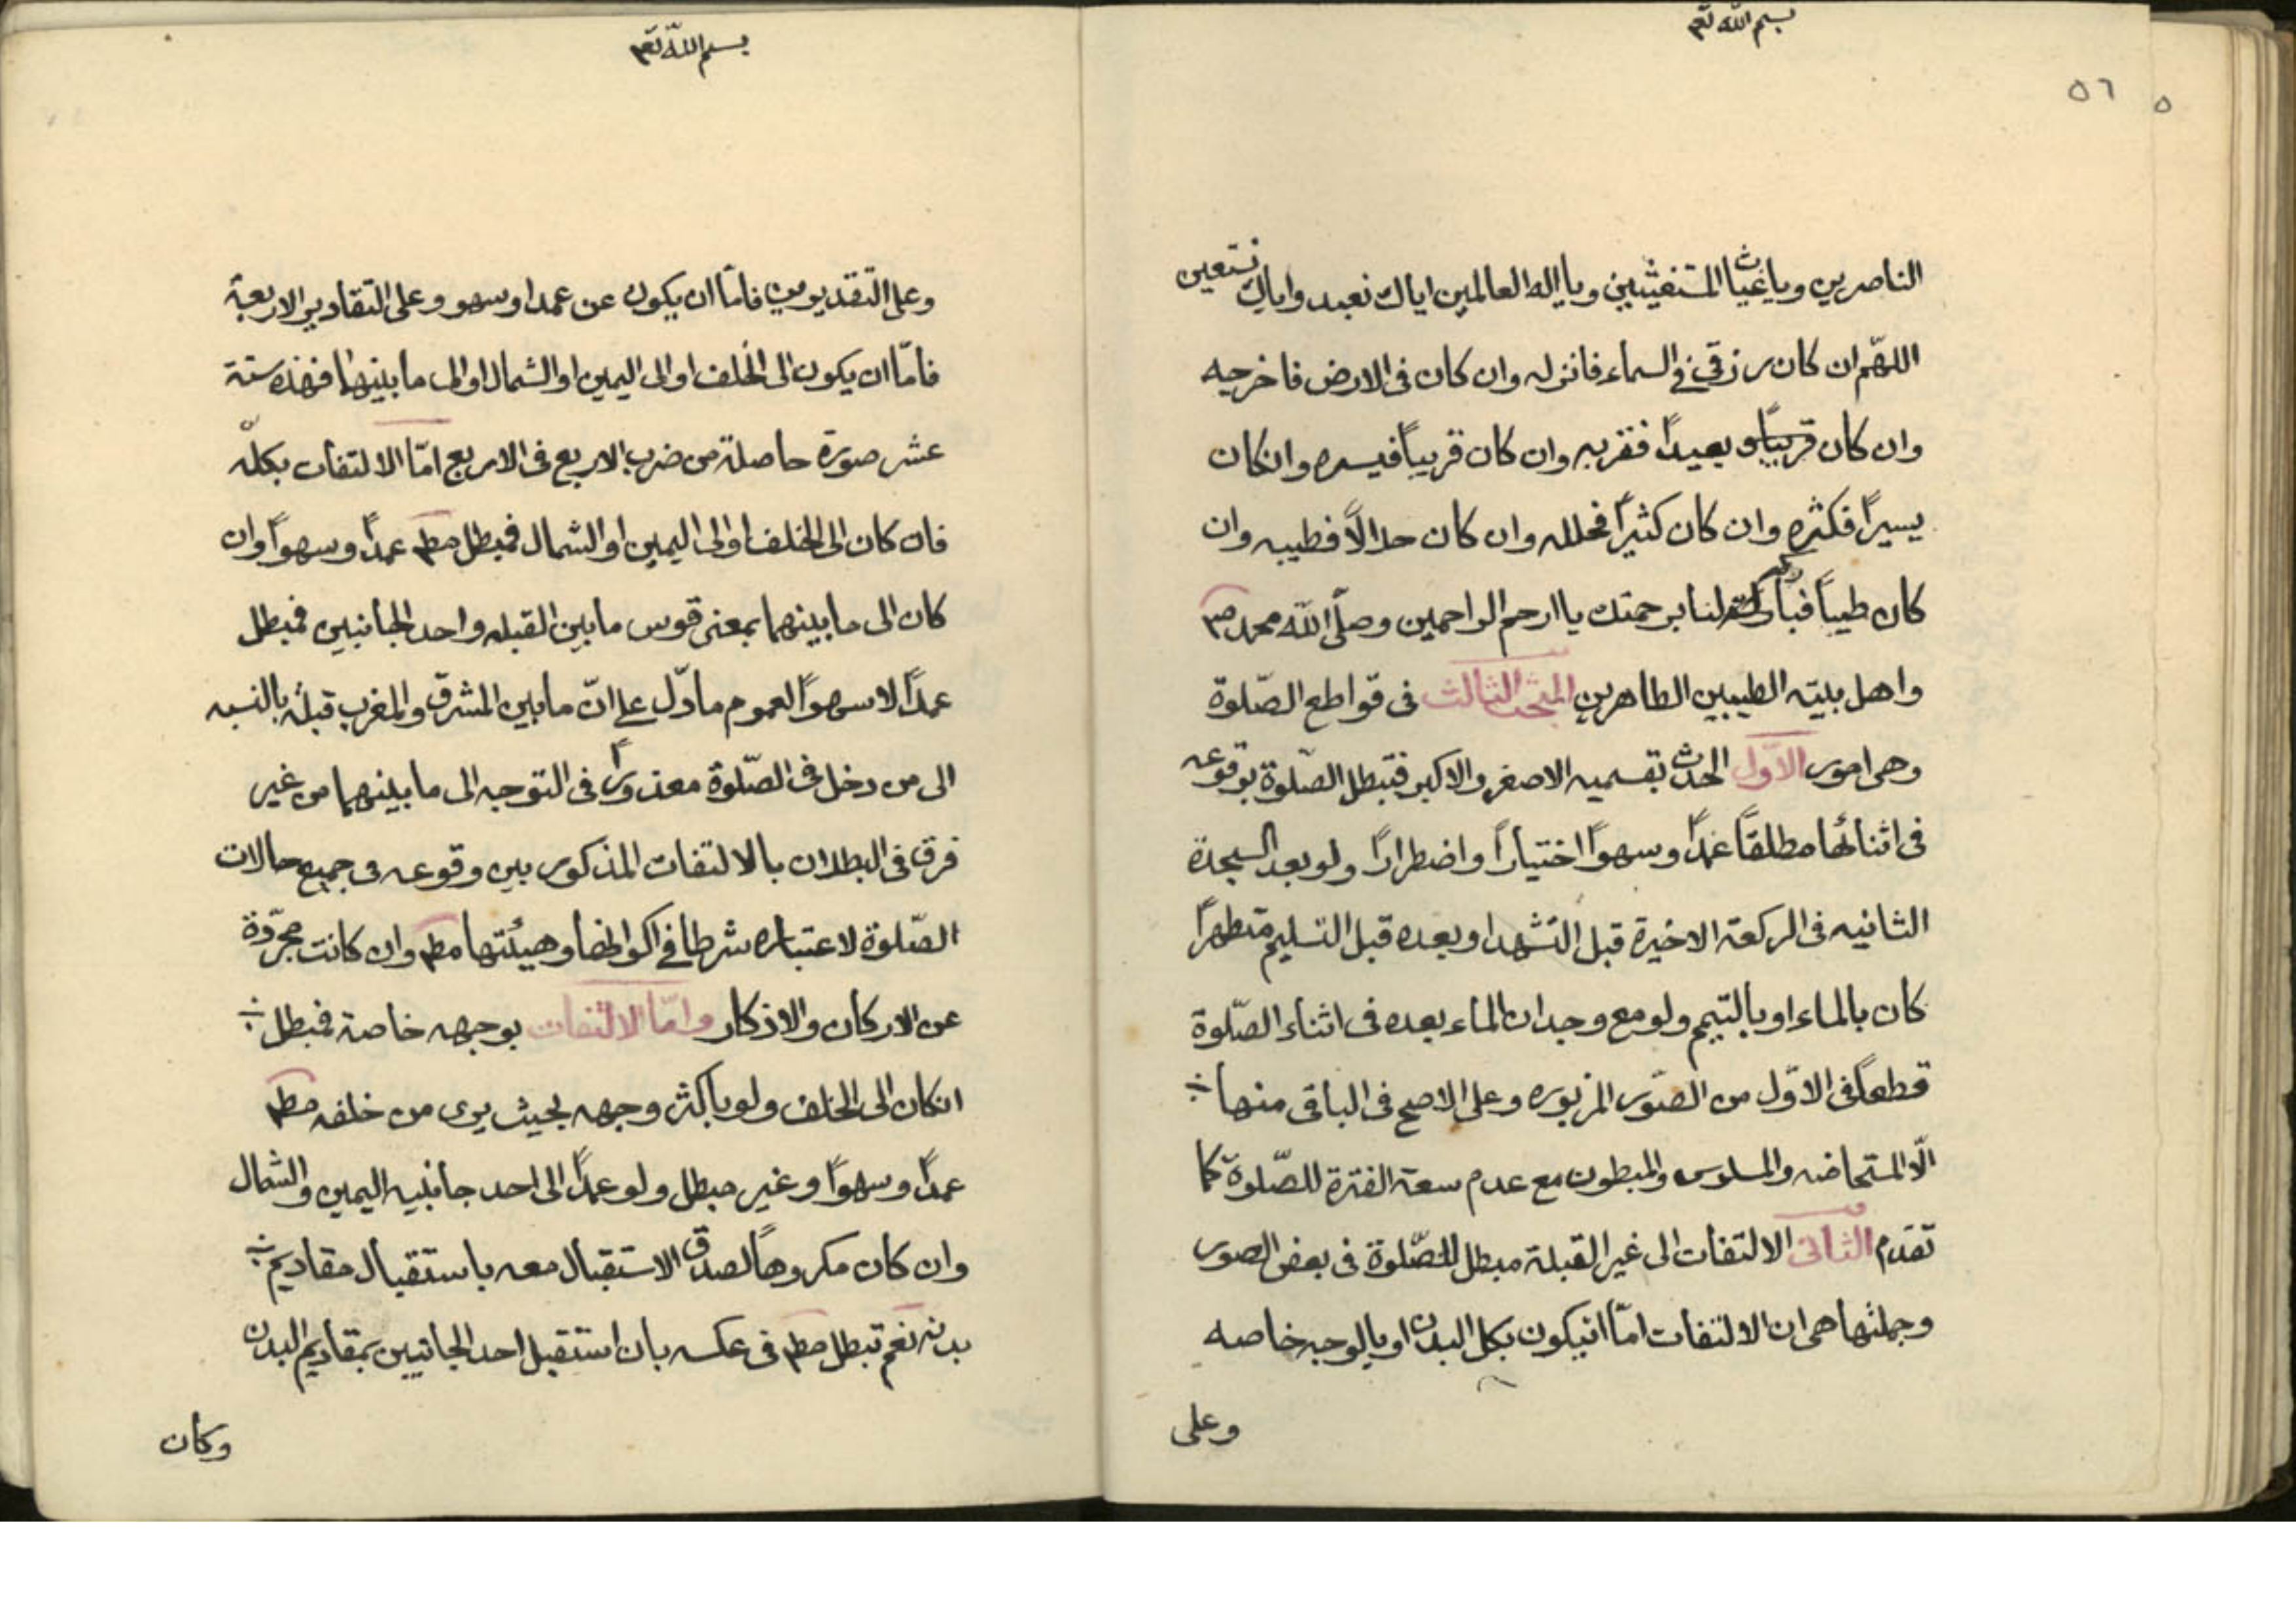 بسم الله تعم
٥٦
٥
الناصرين ويا غياث المستغيثين ويا اله العالمين اياك نعبد واياك نستعين
اللهم ان كان رزقي في السماء فانزله وان كان في الارض فاخرجه
وان كان بعيداً فقربه وان كان قريباً فيسره وانكان
يسيراً فكثره وان كان كثيراً فحلله وان كان حلالاً فطيبه وان
كان طيباً فبارك لنا برحمتك يا ارحم الراحمين وصلى الله محمد ص
واهل بيته الطيبين الطاهرين المبحث الثالث فى قواطع الصّلوة
وهى امور الاوّل الحدث بقسميه الاصغر والاكبر فتبطل الصّلوة بوقوعه
فى اثنائها مطلقاً عمداً وسهواً اختياراً واضطراراً ولو بعد السجدة
الثانيه فى الركعة الاخيرة قبل التشهد او بعده قبل التسليم متطهراً
كان بالماء او بالتيمم ولو مع وجدان الماء بعده فى اثناء الصّلوة
قطعاً فى الاوّل من الصّور المزبوره وعلى الاصح فى الباقى منها
الّا المستحاضه والمسلوس والمبطون مع عدم سعة الفترة للصّلوة كما
تقدم الثانى الالتفات الى غير القبلة مبطل للصّلوة فى بعض الصور
وجملتها هى ان الالتفات امّا انيكون بكل البدن او بالوجه خاصه
وعلى
بسم الله تعم
وعلى التقديرين فاما ان يكون عن عمد او سهو وعلى التقادير الاربعة
فامّا ان يكون الى الخلف او الى اليمين او الشمال او الى ما بينهما فهذه ستة
عشر صورة حاصلة من ضرب الاربع فى الاربع امّا الالتفات بكلّه
فان كان الى الخلف او الى اليمين او الشمال فمبطل مطم عمداً وسهواً وان
كان الى ما بينهما بمعنى قوس ما بين القبله واحد الجانبين فمبطل
عمداً لا سهواً لعموم ما دلّ على انّ ما بين المشرق والمغرب قبلة بالنسبه
الى من دخل فى الصّلوة معذوراً فى التوجه الى ما بينهما من غير
فرق فى البطلان بالالتفات المذكور بين وقوعه فى جميع حالات
الصّلوة لاعتباره شرطا في اكوانها وهيئتها مطم وان كانت مجرّدة
عن الاركان والاذكار وامّا الالتفات بوجهه خاصة فمبطل
انكان الى الخلف ولو باكثر وجهه بحيث يرى من خلفه مطم
عمداً وسهواً وغير مبطل ولو عمداً الى احد جانبيه اليمين والشمال
وان كان مكروهاً لصدق الاستقبال معه باستقبال مقاديم
بدنه نعم تبطل مطم فى عكسه بان استقبل احد الجانبين بمقاديم البدن
وكان